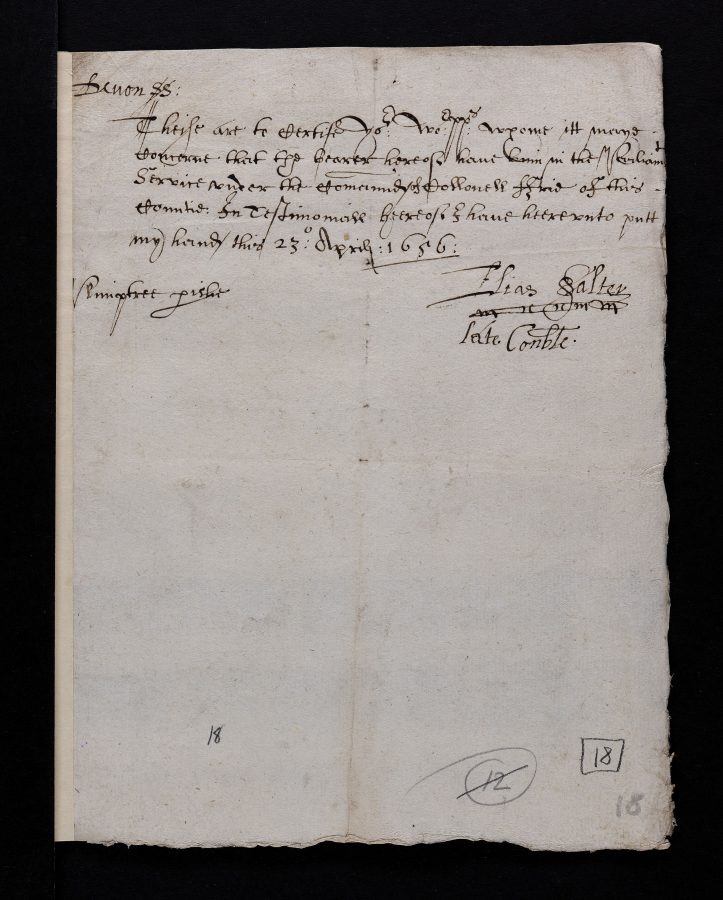 Devon ss:
Theise are to Certifie yor: Worpps: whome itt maye
Concerne that the bearer hereof have binn in the
Service under the Comaund of Collonell of this
Countie. In Testimoniall heereof I have heereunto putt
my hand this 23o: Aprill: 1656:
Plimptree
Elias Salter
late Conble.
18
12
18
18